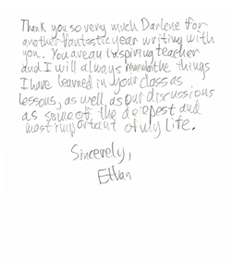 Thank you so very much Darlene for
another fantastic year writing with
you. You are an inspiring teacher
and I will always remember the things
I have learned in your class as
lessons, as well as our discussions
as some of the deepest and
most important of my life.
Sincerely,
Ethan